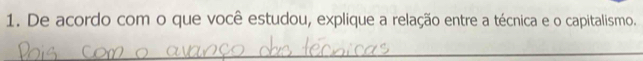 1. De acordo com o que você estudou, explique a relação entre a técnica e o capitalismo.
Pois com o avanço das técnicas